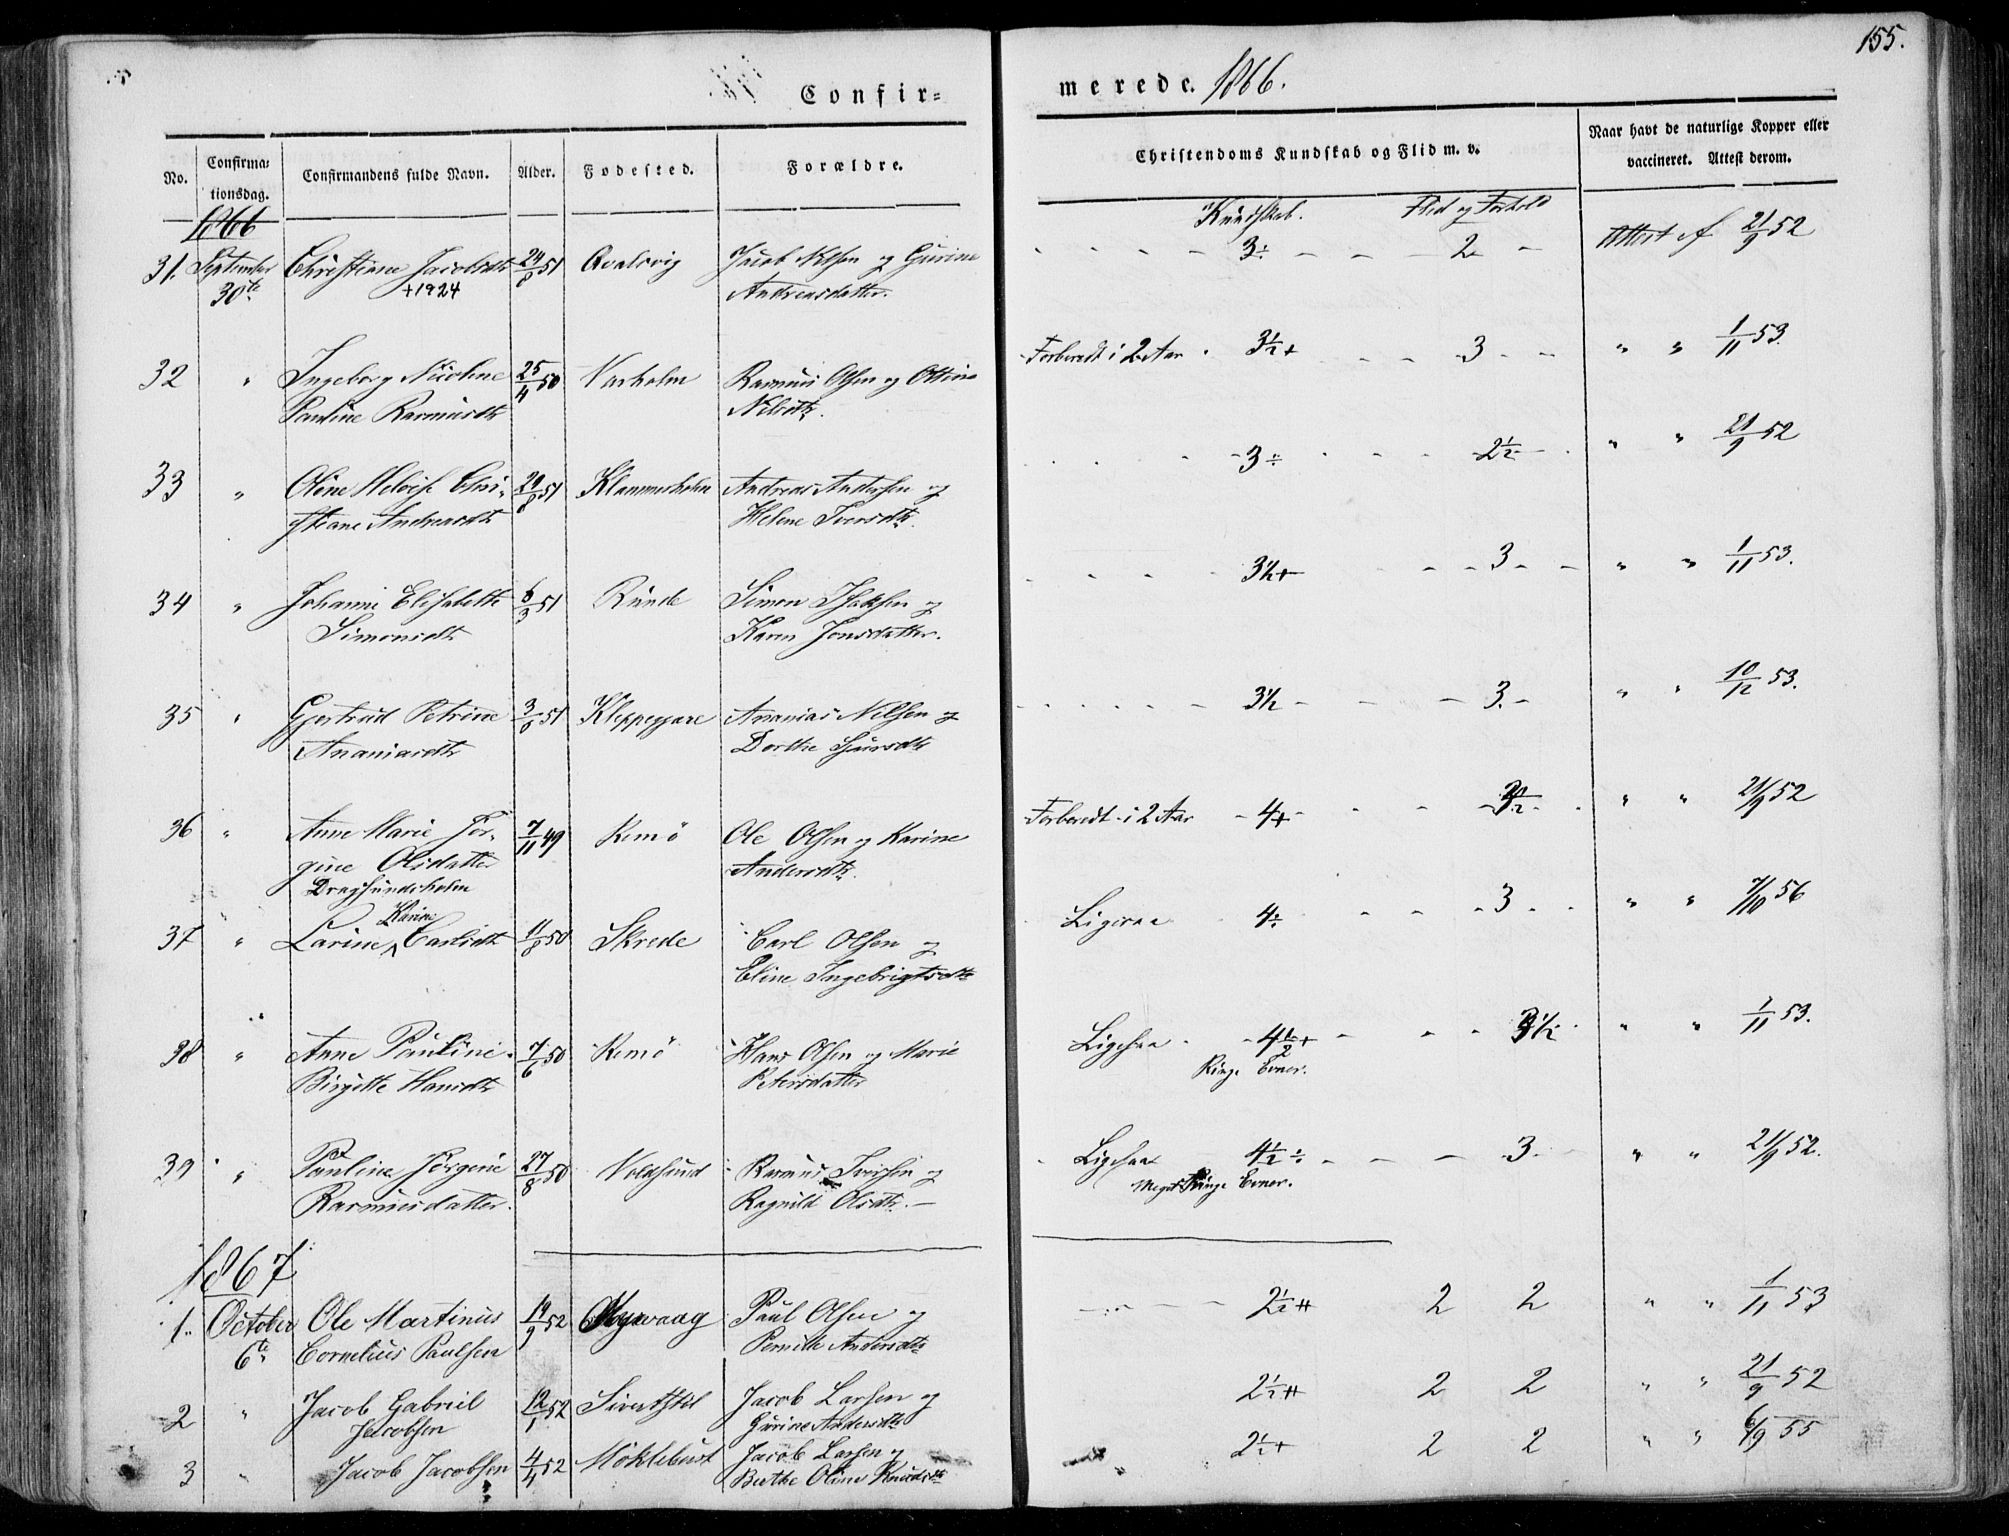 155.
Confir=
merede. 1866.
No.
Confirma=
tionsdag.
Confirmandens fulde Navn.
Alder.
Fødested.
Forældre.
Christendoms Kundskab og Flid m. v.
Naar havt de naturlige Kopper eller
vaccineret. Attest derom.
1866
Kundskab. Flid og Forhold
31. September Christiane Jacobsdtr 24/8 51 Qvalsvig Jacob Nilsen og Gurine 3÷ 2 Attest af 21/9 52
30te +1924 Andreasdatter.
32 " Ingeborg Nicoline 25/4 50 Nærholm Rasmus Olsen og Forberedt i 2 Aar 3½+ 3 " " 1/11 53.
Pauline Rasmusdtr Nilsdtr.
33 " Oline 29/8 51 Klammerholm Andreas Andersen og 3÷ 2½ " " 21/9 52
stiane Andreasdtr Helene Iversdtr.
34 " Johanne Elisabeth 6/3 51 Runde Simon Isaksen og 3½+ 3 " " 1/11 53.
Simonsdtr Karen Jonsdatter.
35 " Gjertrud Petrine 3/8 51 Kleppegjare Ananias Nilsen og 3½ 3. " " 10/12 53.
Ananiasdtr Dorthe Sjursdtr
36 " Anne Marie Jør- 7/11 49 Remø Ole Olsen og Karine Forberedt i 2 Aar 4+ " " 21/9 52
gine Olsdatter Andersdtr.
Dragsundsholm
Karine
37 " Larine Carlsdtr 11/8 50 Skrede Carl Olsen og Ligesaa 4÷ 3 " " 7/10 56
Eline Ingebrigtsdtr
38 " Anne Pauline 7/6 50 Remø Hans Olsen og Marie Ligesaa 4½+ 3½ " " 1/11 53.
Birgitte Hansdtr Petersdatter Ringe Evner.
39 " Pauline Jørgine 27/8 50 Voldsund Rasmus Iversen og Ligesaa 4½÷ 3 " " 21/9 52.
Rasmusdatter. Ragnild Olsdtr. Meget Ringe Evner.
1867
1. October Ole Martinus 19/9 52 Paul Olsen og 2½++ 2 2 " " 1/11 53
6te Cornelius Paulsen Pernille Andersdtr
2 " Jacob Gabriel 12/1 52 Jacob Larsen og 2½++ 2 2 " " 21/9 52
Jacobsen Gurine Andersdtr
3 " Jacob Jacobsen 4/4 52 Møklebust Jacob Larsen og 2½+ 2 2 " " 6/9 55
Berthe Oline Knudsdtr